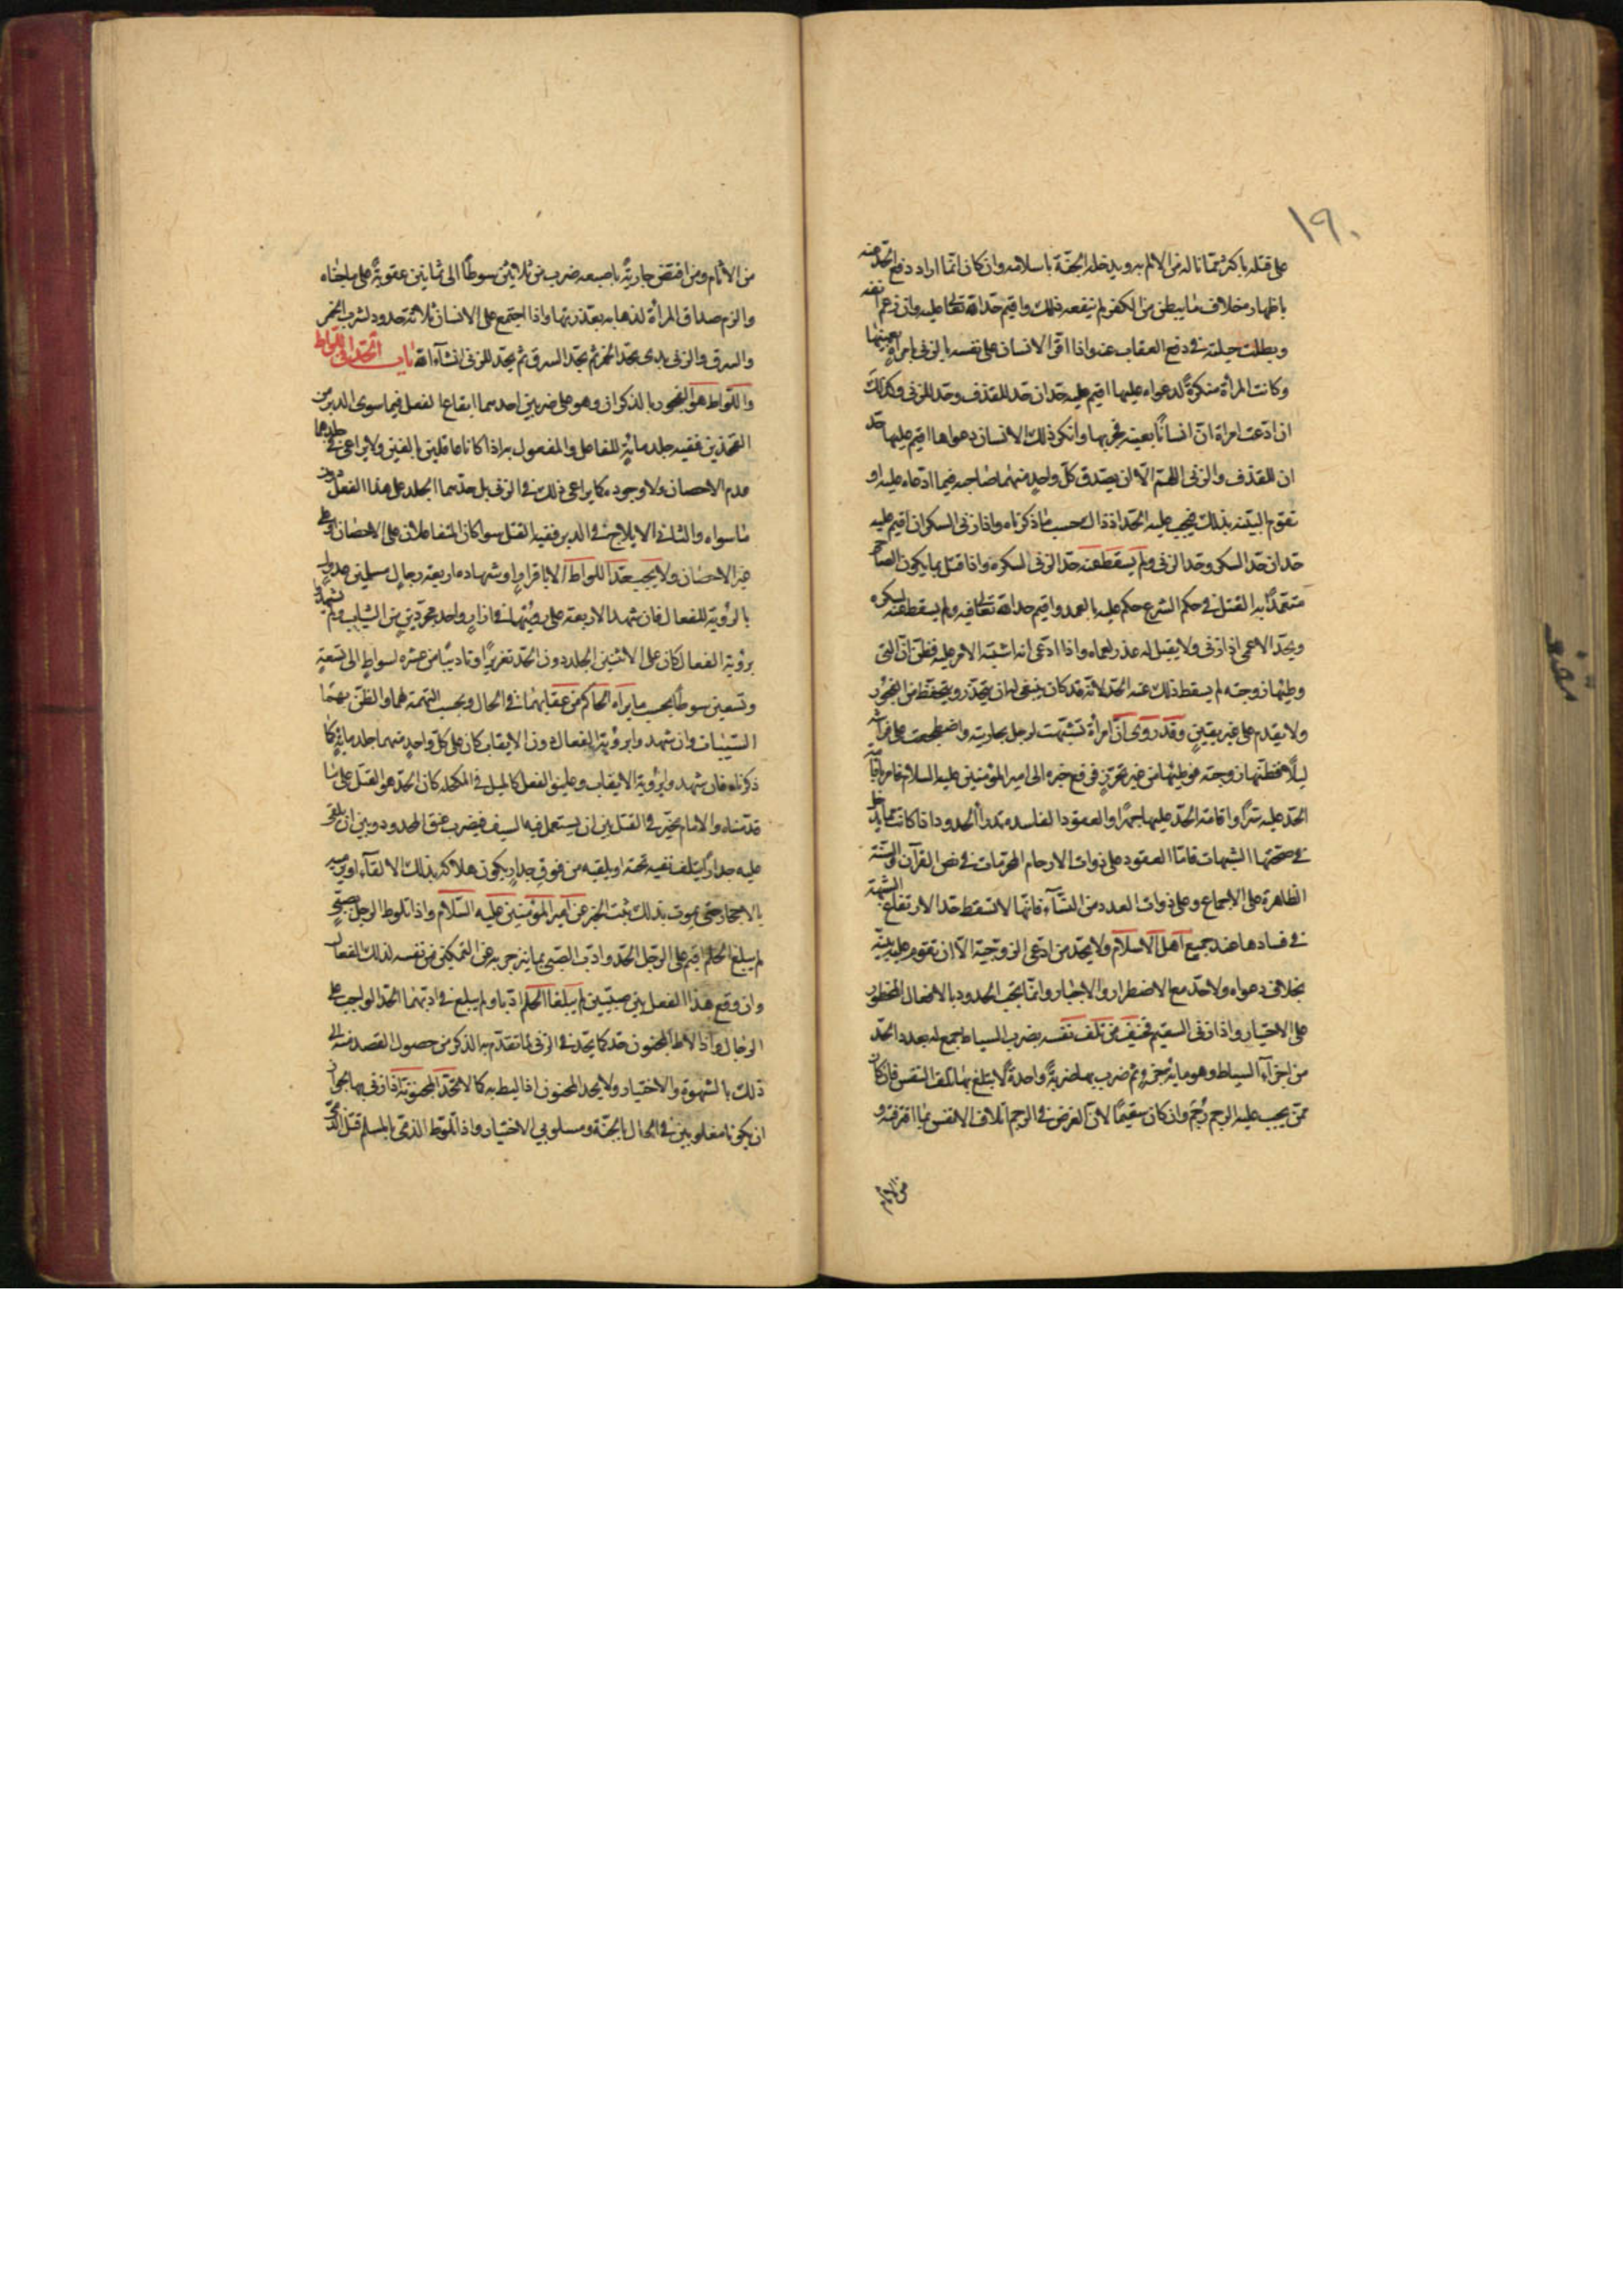 ١٩٠
على قتله باكثر مما ناله من الالم به ويدخله الجنة باسلامه وان كان انما اراد دفع الحد منه
باظهار خلاف ما يبطن من الكفر لم ينفعه ذلك واقيم حد الله تعالى عليه وان زعم انفه
وبطلت حيلته في دفع العقاب عنه واذا اقر الانسان على نفسه بالزنى بامراة بعينها
وكانت المرأة منكرة لدعواه عليها اقيم عليه حدان حد للقذف وحد للزنى وكذلك
ان ادعت امراة ان انسانا بعينه فجر بها وانكر ذلك الانسان دعواها اقيم عليها حد
ان للقذف والزنى اللهم الا ان يصدق كل واحد منهما صاحبه فيما ادعاه عليه او
تقوم البينة بذلك فيجب عليه الحد اذ ذاك حسب ما ذكرناه واذا زنى السكران اقيم عليه
حدان حد السكر وحد الزنى ولم يسقط عنه حد الزنى السكره واذا قتل بما يكون الصاحي
متعمدا به القتل في حكم الشرع حكم عليه بالعمد واقيم حد الله تعالى فيه ولم يسقط عنه لسكره
ويحد الاعمى اذا زنى ولا يقبل له عذر لعماه واذا ادعى انه اشتبه الامر عليه فظن ان التي
وطئها زوجته لم يسقط ذلك عنه الحد لانه قد كان ينبغي له ان يتحذر ويتحفظ من الفجور
ولا يقدم على غير يقين وقد روى ان امرأة تشبهت لرجل بجاريته واضطجعت على فراشه
ليلا فظنها زوجته فوطئها من غير تحرز فرفع خبره الى امير المؤمنين عليه السلام فامر باقامة
الحد عليه سرا واقامة الحد عليها جهرا والعقود الفاسدة تدرأ الحدود اذا كانت مما يدخل
في صحتها الشبهات فاما العقود على ذوات الارحام المحرمات في نص القرآن والسنة
الظاهرة على الاجماع وعلى ذوات العدد من النساء فانها لا تسقط حدا لارتفاع الشبهة
في فسادها عند جميع اهل الاسلام ولا يحد من ادعى الزوجية الا ان تقوم عليه بينة
بخلاف دعواه ولا حد مع الاضطرار والاجبار وانما يجب الحدود بالافعال المحظورة
على الاختيار واذا زنى السقيم فخيف من تلف نفسه بضرب السياط جمع له بعدد الحد
من اجزاء السياط وهو مائة جزء ثم ضرب بها ضربة واحدة لا يبلغ بها تلف النفس فان كان
ممن يجب عليه الرجم رجم وان كان سقيما لان الغرض في الرجم اتلاف الانفس بما اقترفته و
من الاثام
من الاثام ومن افتض جارية باصبعه ضرب من ثلاثين سوطا الى ثمانين عقوبة على ما جناه
والزم صداق المرأة لذهابه بعذرتها واذا اجتمع على الانسان ثلاثة حدود لشرب الخمر
والسرق والزنى بدى بحد الخمر ثم بحد السرق ثم بحد للزنى انشاء الله باب الحد في اللواط
واللواط هو الفجور بالذكران وهو على ضربين احدهما ايقاع الفعل فيما سوى الدبر من
الفخذين ففيه جلد مائة للفاعل والمفعول به اذا كانا عاقلين بالغين ولا يراعى في جلدهما
عدم الاحصان ولا وجوده كما يراعى ذلك في الزنى بل حدهما الجلد على هذا الفعل دون
ما سواه والثاني الايلاج في الدبر ففيه القتل سواء كان المتفاعلان على الاحصان او على
غير الاحصان ولا يجب حد اللواط الا باقرار او شهادة اربعة رجال مسلمين عدول
بالرؤية للفعال فان شهد الاربعة على رؤيتهما في ازار واحد مجردين من الثياب ولم يشهدوا
برؤية الفعال كان على الاثنين الجلد دون الحد تعزيرا وتاديبا من عشرة اسواط الى تسعة
وتسعين سوطا بحسب ما يراه الحاكم من عقابهما في الحال وبحسب التهمة لهما والظن بهما
السيئات وان شهدوا برؤية الفعال دون الايقاب كان على كل واحد منهما جلد مائة كما
ذكرناه فان شهدوا برؤية الايقاب وعليق الفعل كالميل في المكحلة كان الحد هو القتل على ما
قدمناه والامام مخير في القتل بين ان يستعمل فيه السيف فيضرب عنق المحدود وبين ان يلقى
عليه جدارا يتلف نفسه تحته او يلقيه من فوق جدار يكون هلاكه بذلك الالقاء او يرميه
بالاحجار حتى يموت بذلك ثبت الخبر عن امير المؤمنين عليه السلام واذا تلوط الرجل بصبي
لم يبلغ الحلم اقيم على الرجل الحد وادب الصبي بما ينزجر به عن التمكين من نفسه لذلك الفعال
وان وقع هذا الفعل بين صبيين لم يبلغا الحلم ادبا ولم يبلغ في ادبهما الحد الواجب على
الرجال واذا لاط المجنون حد كما يحد في الزنى لما تقدم به الذكر من حصول القصد منه الى
ذلك بالشهوة والاختيار ولا يحد المجنون اذا ليط به كما لا تحد المجنونة اذا زنى بها لجواز
ان يكونا مغلوبين في الحال بالجنة ومسلوبي الاختيار واذا تلوط الذمي بالمسلم قتل الذمي